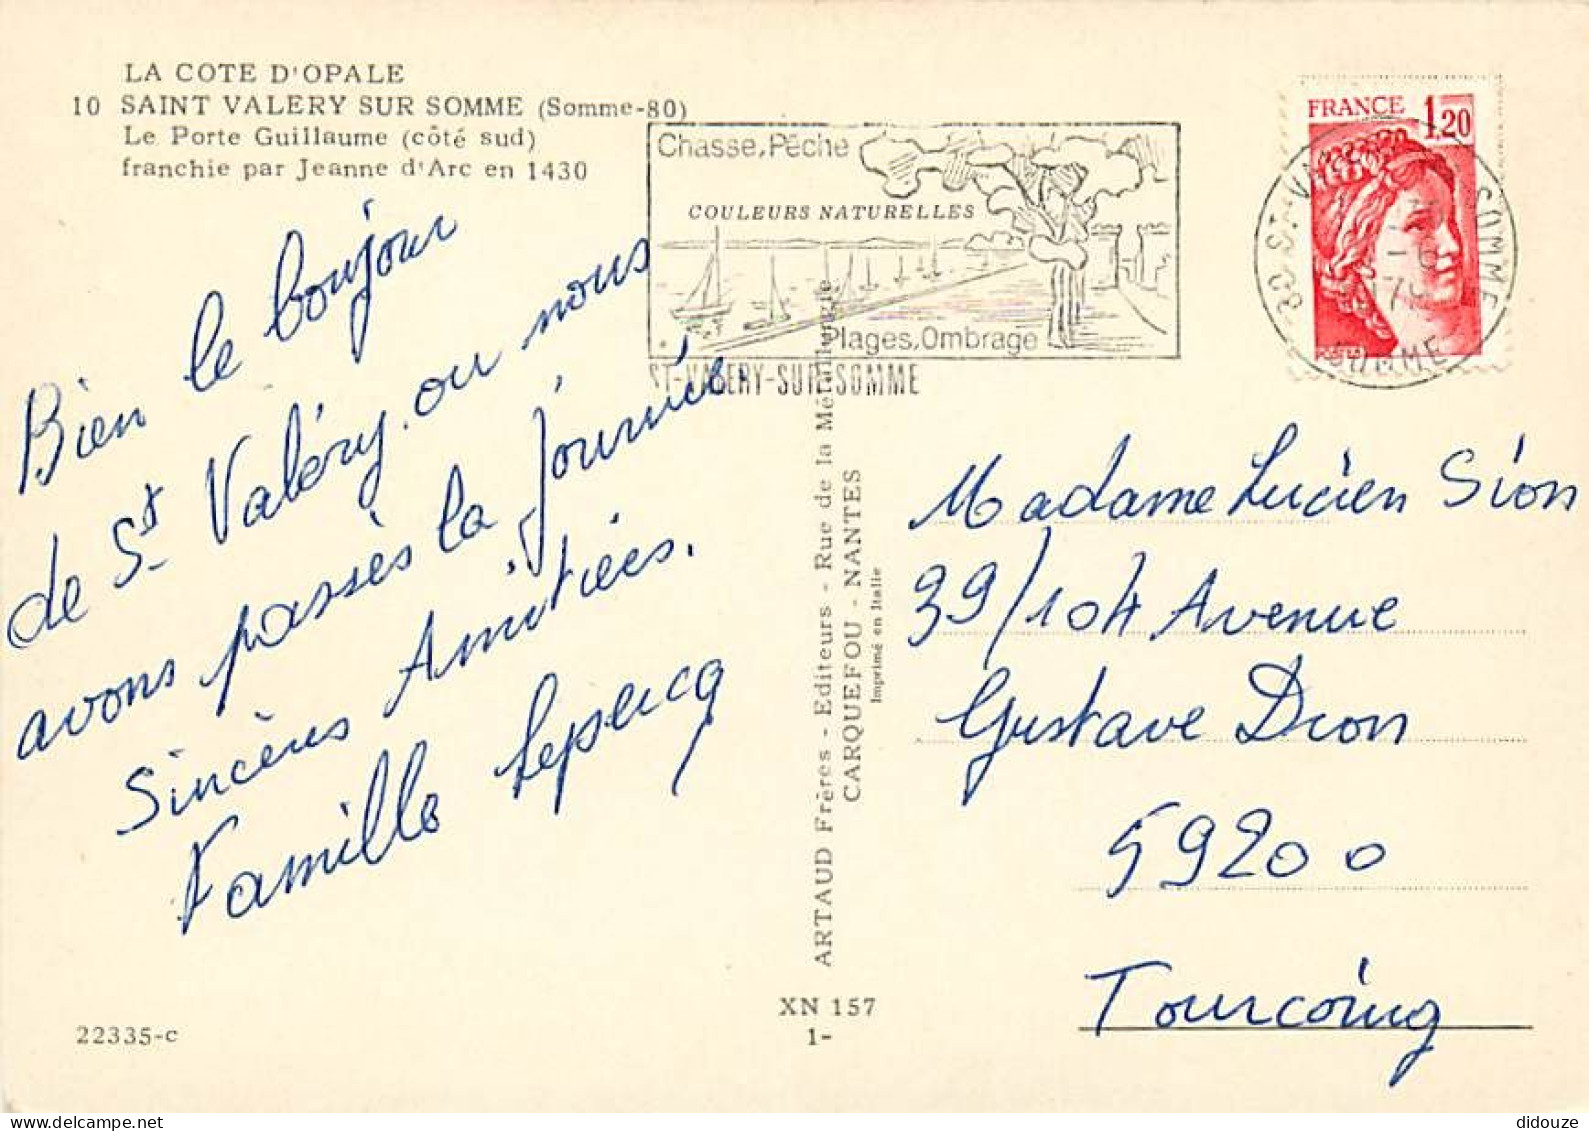 LA COTE D'OPALE
10 SAINT VALERY SUR SOMME (Somme-80)
Le Porte Guillaume (côté sud)
franchie par Jeanne d'Arc en 1430
Chasse, Pêche
COULEURS NATURELLES
Plages, Ombrage
ST-VALERY-SUR-SOMME
FRANCE 1,20
POSTES
80 ST-VALERY SOMME
SOMME
Bien le bonjour
de St Valéry, ou nous
avons passès la Journée.
Sincères Amitiées.
Famille Lepercq
Madame Lucien Sion
39/104 Avenue
Gustave Dron
59200
Tourcoing
ARTAUD Frères - Editeurs - Rue de la Métallurgie
CARQUEFOU - NANTES
Imprimé en Italie
XN 157
1-
22335-c
didouze